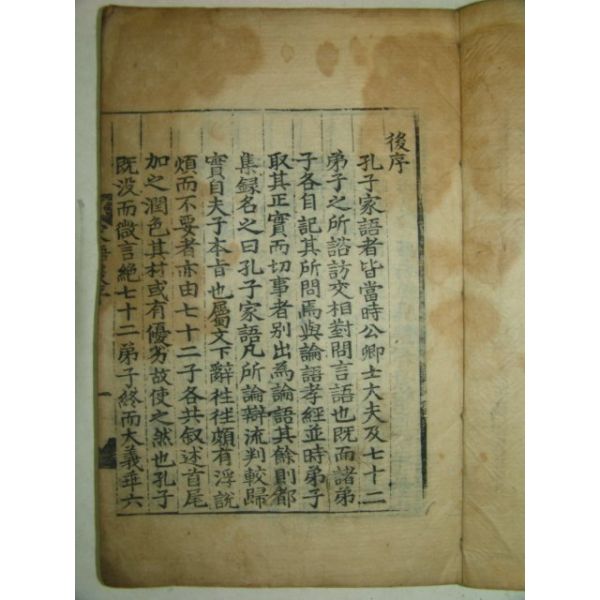 後序
孔子家語者皆當時公卿士大夫及七十二
弟子之所諮訪交相對問言語也既而諸弟
子各自記其所問焉與論語孝經並時弟子
取其正實而切事者別出為論語其餘則都
集録名之曰孔子家語凡所論辯流判較歸
實自夫子本旨也屬文下辭往往頗有浮說
煩而不要者亦由七十二子各共叙述首尾
加之潤色其材或有優劣故使之然也孔子
既没而微言絶七十二弟子終而大義乖六